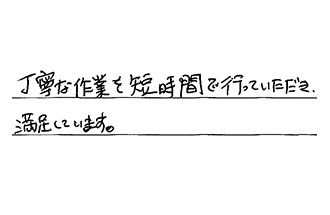 丁寧な作業を短時間で行っていただき、
満足しています。